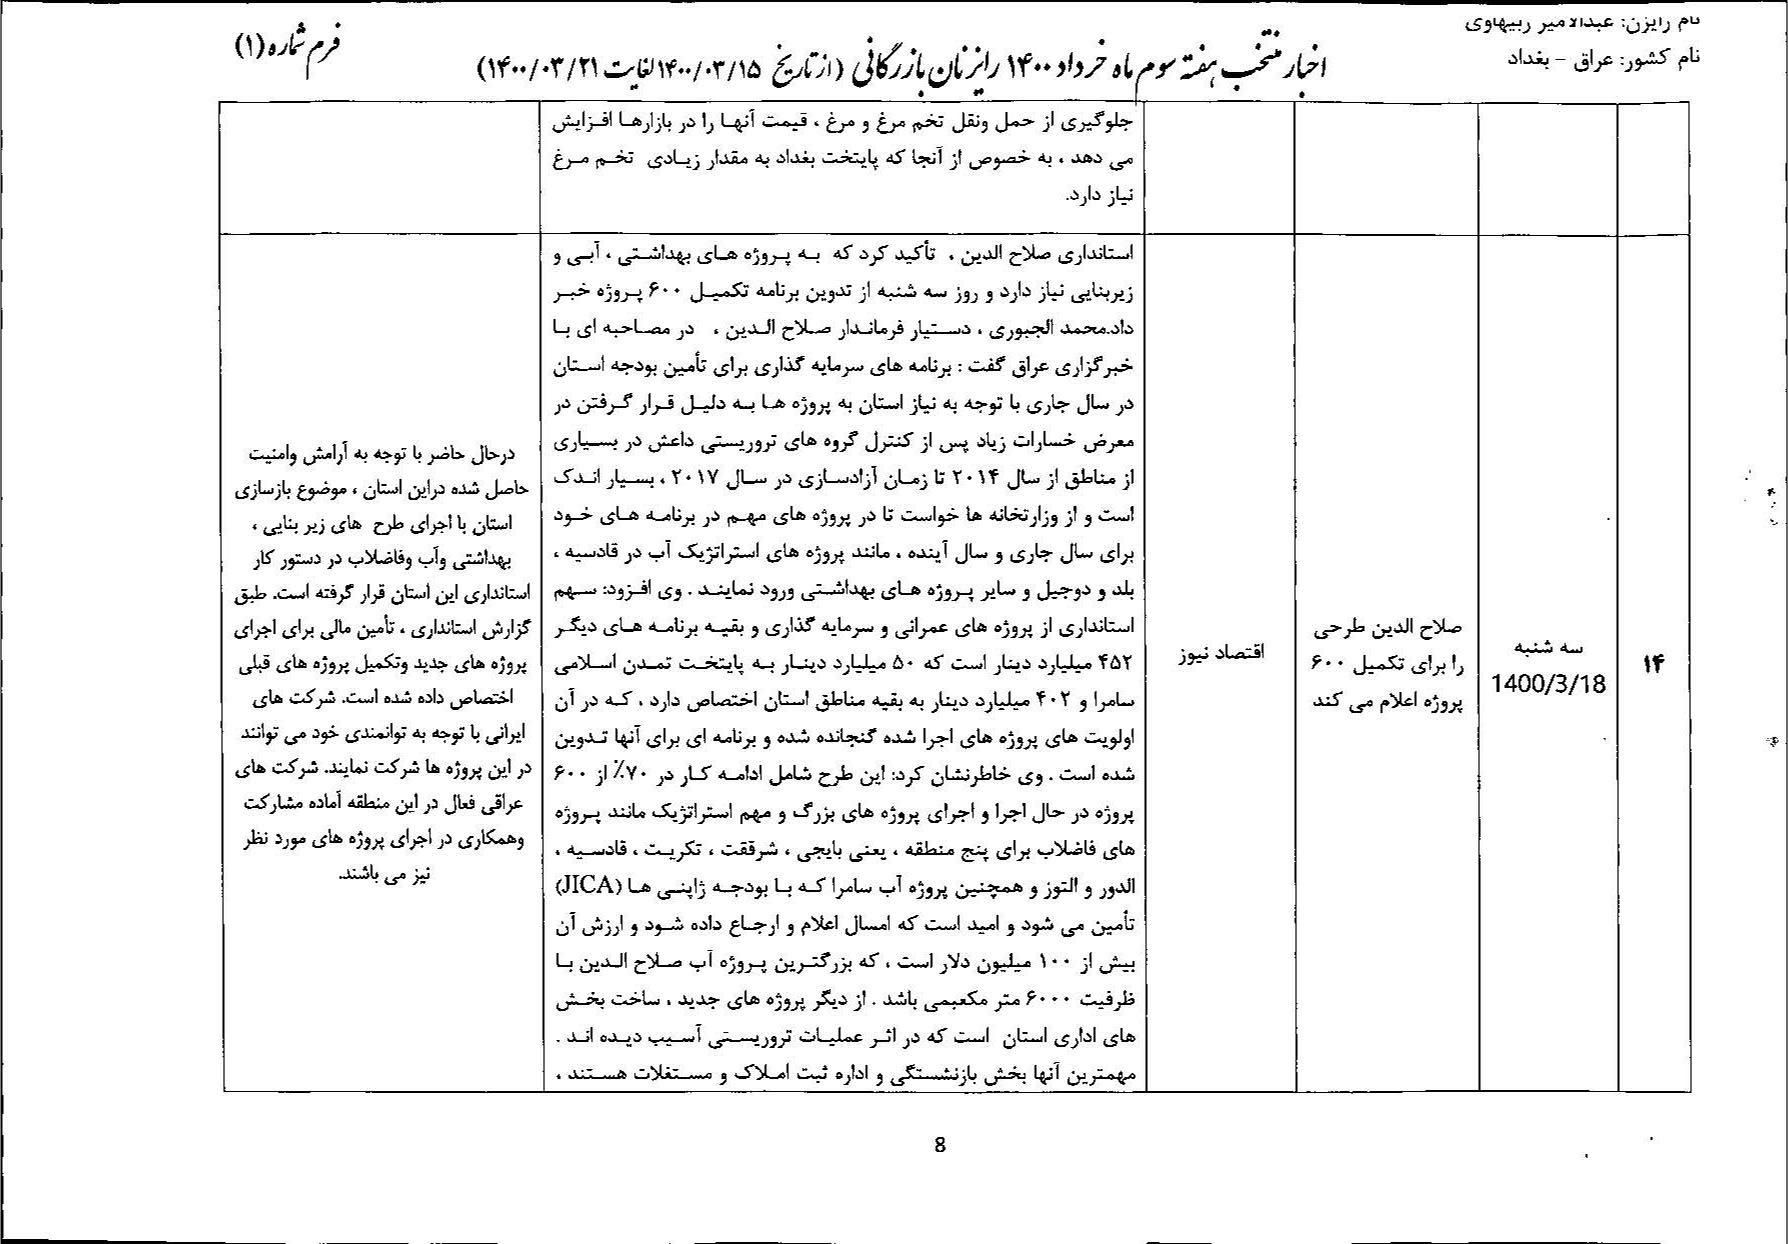 نام رایزن: عبدالامیر ربیهاوی
نام کشور: عراق - بغداد
فرم شماره (۱)
اخبار منتخب هفته سوم ماه خرداد ۱۴۰۰ رایزنان بازرگانی (از تاریخ ۱۴۰۰/۰۳/۱۵ لغایت ۱۴۰۰/۰۳/۲۱)
جلوگیری از حمل ونقل تخم مرغ و مرغ ، قیمت آنها را در بازارها افزایش
می دهد ، به خصوص از آنجا که پایتخت بغداد به مقدار زیادی تخم مرغ
نیاز دارد.
۱۴
سه شنبه
1400/3/18
صلاح الدین طرحی
را برای تکمیل ۶۰۰
پروژه اعلام می کند
اقتصاد نیوز
استانداری صلاح الدین ، تأکید کرد که به پروژه های بهداشتی ، آبی و
زیربنایی نیاز دارد و روز سه شنبه از تدوین برنامه تکمیل ۶۰۰ پروژه خبر
داد.محمد الجبوری ، دستیار فرماندار صلاح الدین ، در مصاحبه ای با
خبرگزاری عراق گفت : برنامه های سرمایه گذاری برای تأمین بودجه استان
در سال جاری با توجه به نیاز استان به پروژه ها به دلیل قرار گرفتن در
معرض خسارات زیاد پس از کنترل گروه های تروریستی داعش در بسیاری
از مناطق از سال ۲۰۱۴ تا زمان آزادسازی در سال ۲۰۱۷ ، بسیار اندک
است و از وزارتخانه ها خواست تا در پروژه های مهم در برنامه های خود
برای سال جاری و سال آینده ، مانند پروژه های استراتژیک آب در قادسیه ،
بلد و دوجیل و سایر پروژه های بهداشتی ورود نمایند . وی افزود: سهم
استانداری از پروژه های عمرانی و سرمایه گذاری و بقیه برنامه های دیگر
۴۵۲ میلیارد دینار است که ۵۰ میلیارد دینار به پایتخت تمدن اسلامی
سامرا و ۴۰۲ میلیارد دینار به بقیه مناطق استان اختصاص دارد ، که در آن
اولویت های پروژه های اجرا شده گنجانده شده و برنامه ای برای آنها تدوین
شده است . وی خاطرنشان کرد: این طرح شامل ادامه کار در ۷۰٪ از ۶۰۰
پروژه در حال اجرا و اجرای پروژه های بزرگ و مهم استراتژیک مانند پروژه
های فاضلاب برای پنج منطقه ، یعنی بایجی ، شرققت ، تکریت ، قادسیه ،
الدور و التوز و همچنین پروژه آب سامرا که با بودجه ژاپنی ها (JICA)
تأمین می شود و امید است که امسال اعلام و ارجاع داده شود و ارزش آن
بیش از ۱۰۰ میلیون دلار است ، که بزرگترین پروژه آب صلاح الدین با
ظرفیت ۶۰۰۰ متر مکعبمی باشد . از دیگر پروژه های جدید ، ساخت بخش
های اداری استان است که در اثر عملیات تروریستی آسیب دیده اند .
مهمترین آنها بخش بازنشستگی و اداره ثبت املاک و مستغلات هستند ،
درحال حاضر با توجه به آرامش وامنیت
حاصل شده دراین استان ، موضوع بازسازی
استان با اجرای طرح های زیر بنایی ،
بهداشتی وآب وفاضلاب در دستور کار
استانداری این استان قرار گرفته است. طبق
گزارش استانداری ، تأمین مالی برای اجرای
پروژه های جدید وتکمیل پروژه های قبلی
اختصاص داده شده است. شرکت های
ایرانی با توجه به توانمندی خود می توانند
در این پروژه ها شرکت نمایند. شرکت های
عراقی فعال در این منطقه آماده مشارکت
وهمکاری در اجرای پروژه های مورد نظر
نیز می باشند.
8